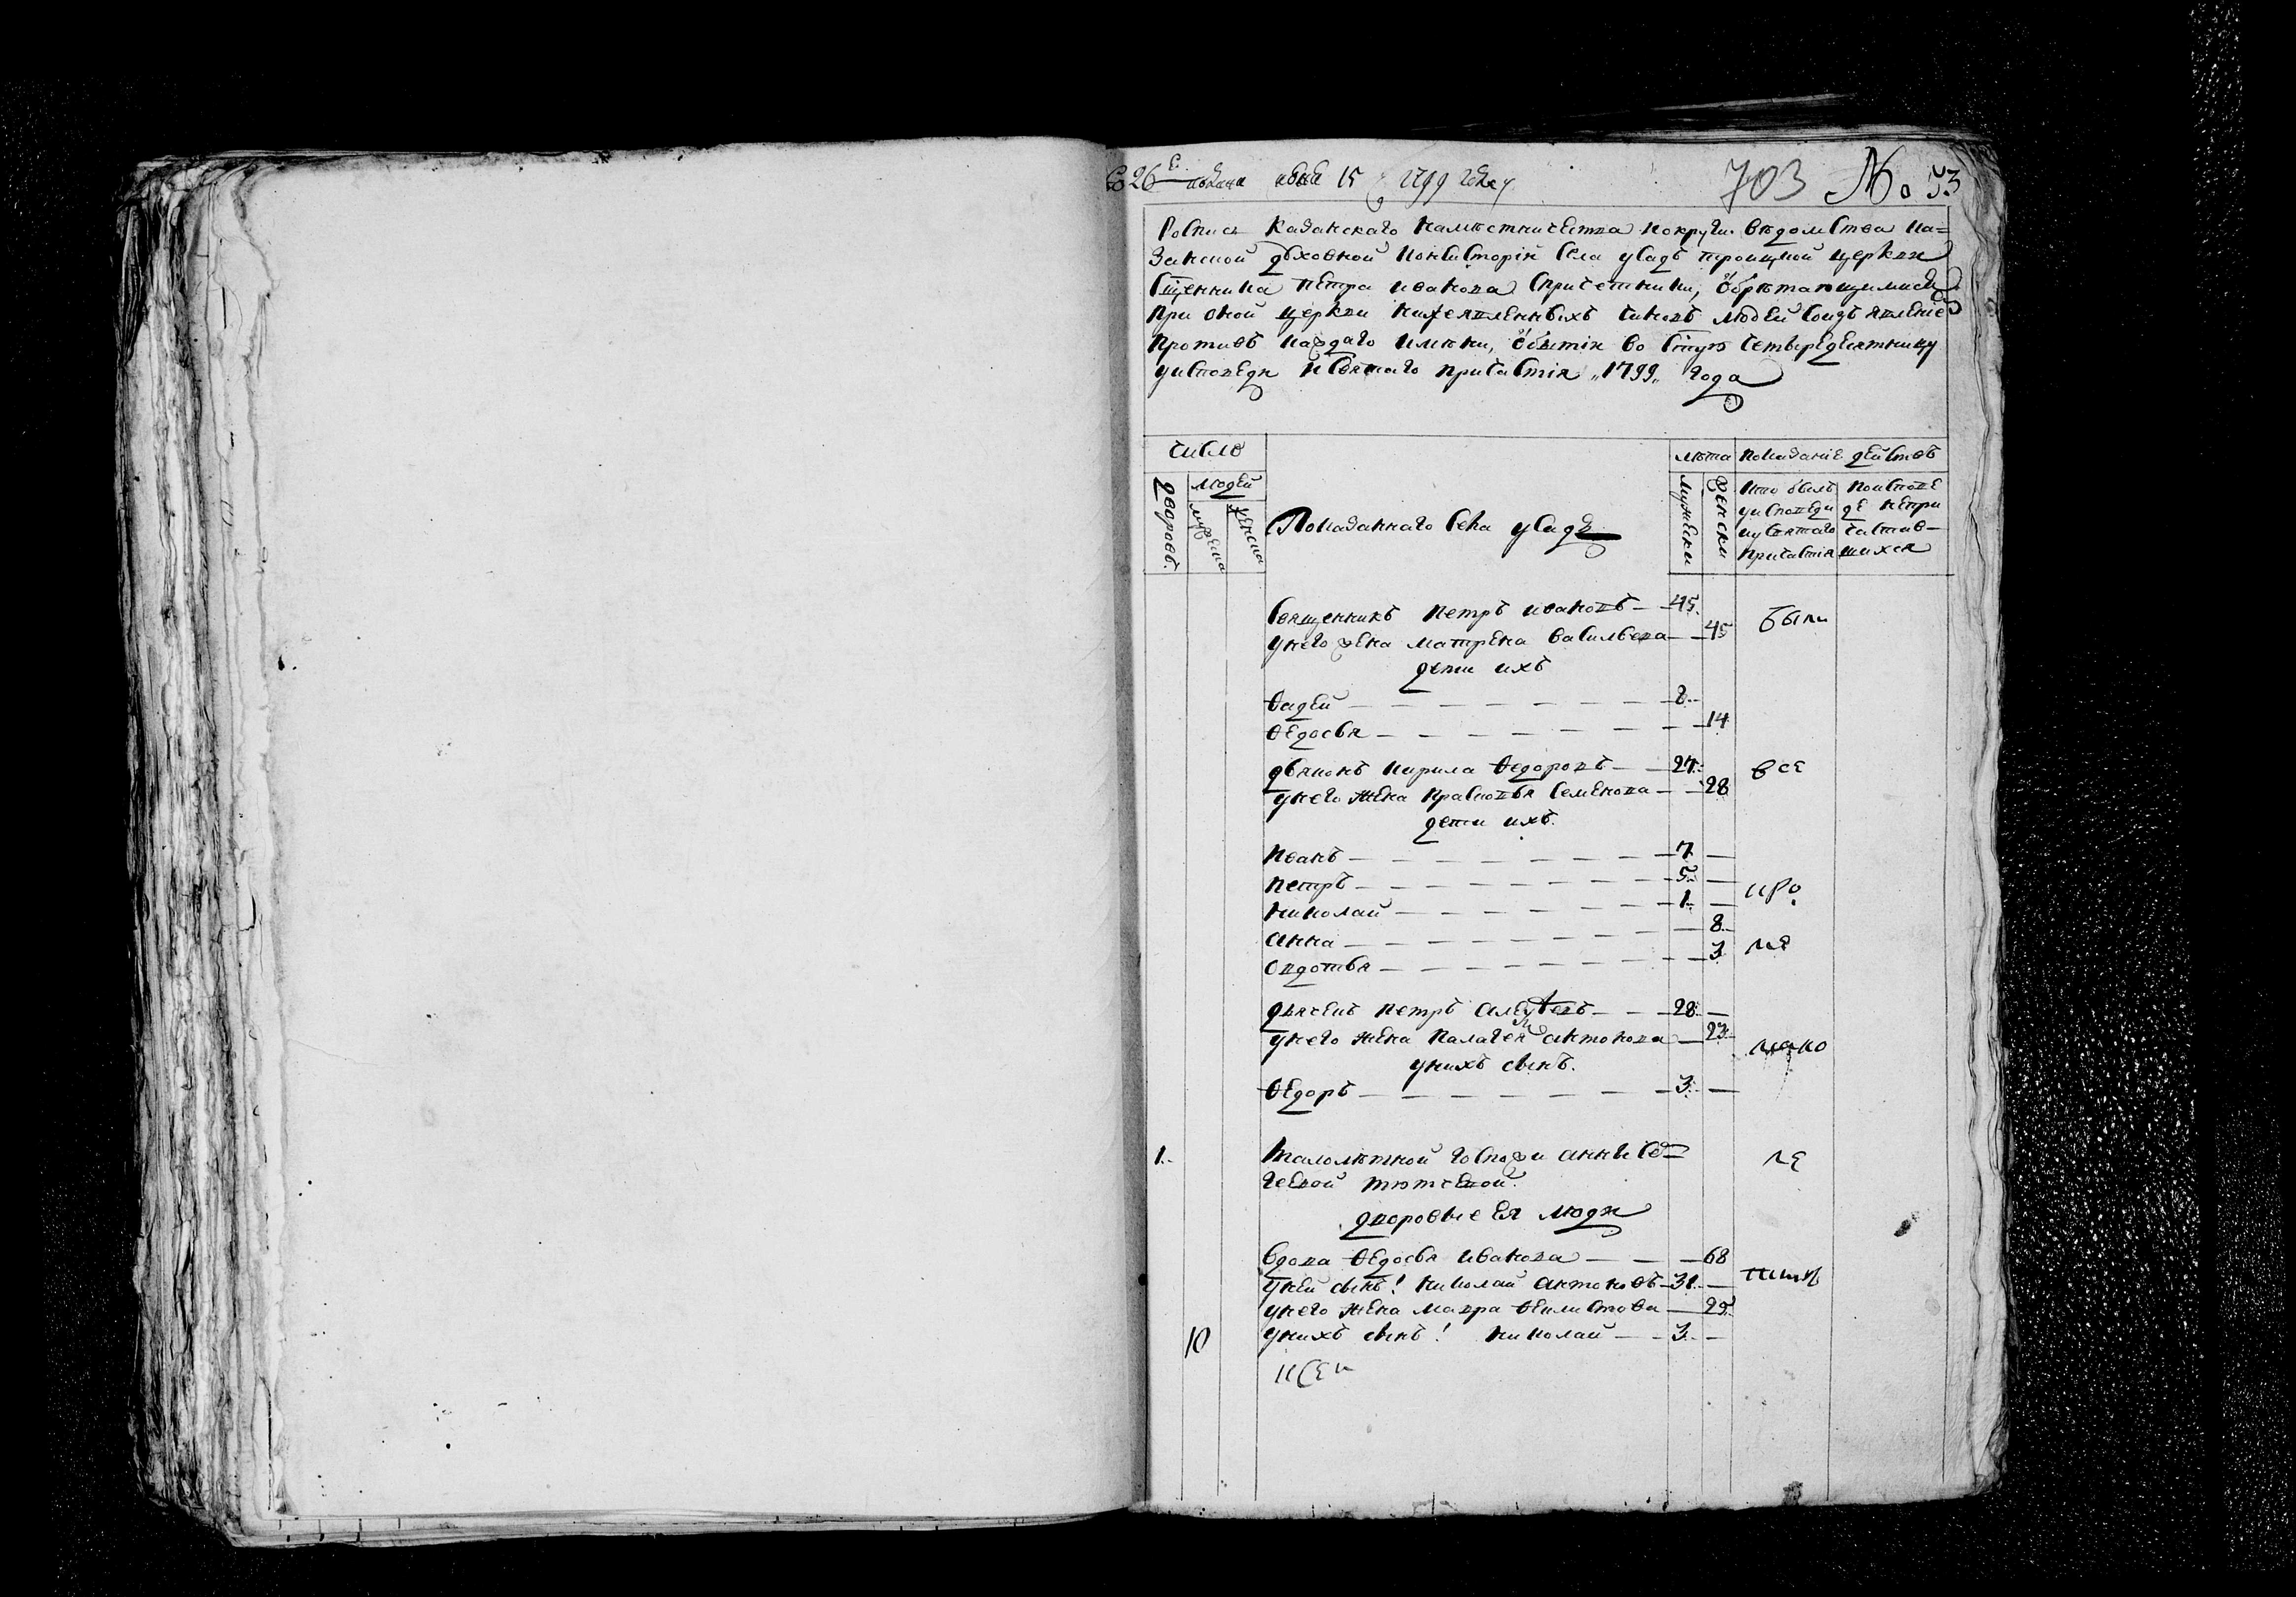 703 № 53
Роспись Казанскаго наместничества ... округи ведомства Ка=
занской духовной консисторіи села усадъ троицкой церкви
священника Петра Иванова спричетники, обретающимися
при оной церкви нижеявленныхъ чиновъ людей соизъявленіемъ
противъ каждаго имяни, о бытіи во святую четыредесятницу
у исповеди и святаго причастія „1799„ года
число
людей
лета
показаніе действъ
дворовъ.
мужеска
женска
Показаннаго села усадъ
мужески
женски
кто былъ
у исповеди
и у святаго
причастія
по испове
де непри
частив=
шихся
Священникъ Петръ Ивановъ 45.
у него жена Матрена Васильева 45 были
дети ихъ
Ѳадей 8.
Ѳедосья 14
дьяконъ Кирила Ѳедоровъ 27. все
у него жена Прасковья Семенова 28
дети ихъ.
Иванъ 7
Петръ 5.
Николай 1.
Анна 8.
Овдотья 3
дьячекъ Петръ Алексеевъ 28.
у него жена Палагея Антонова 23.
у нихъ сынъ.
Ѳедоръ 3.
1. Малолетной госпожи Анны Сер=
геевой Тютчевой.
дворовые ея люди
вдова Ѳедосья Иванова 68
у ней сынъ! Николай Антоновъ 31.
у него жена Мавра Ѳеклистова 29.
10 у нихъ сынъ! Николай 3.